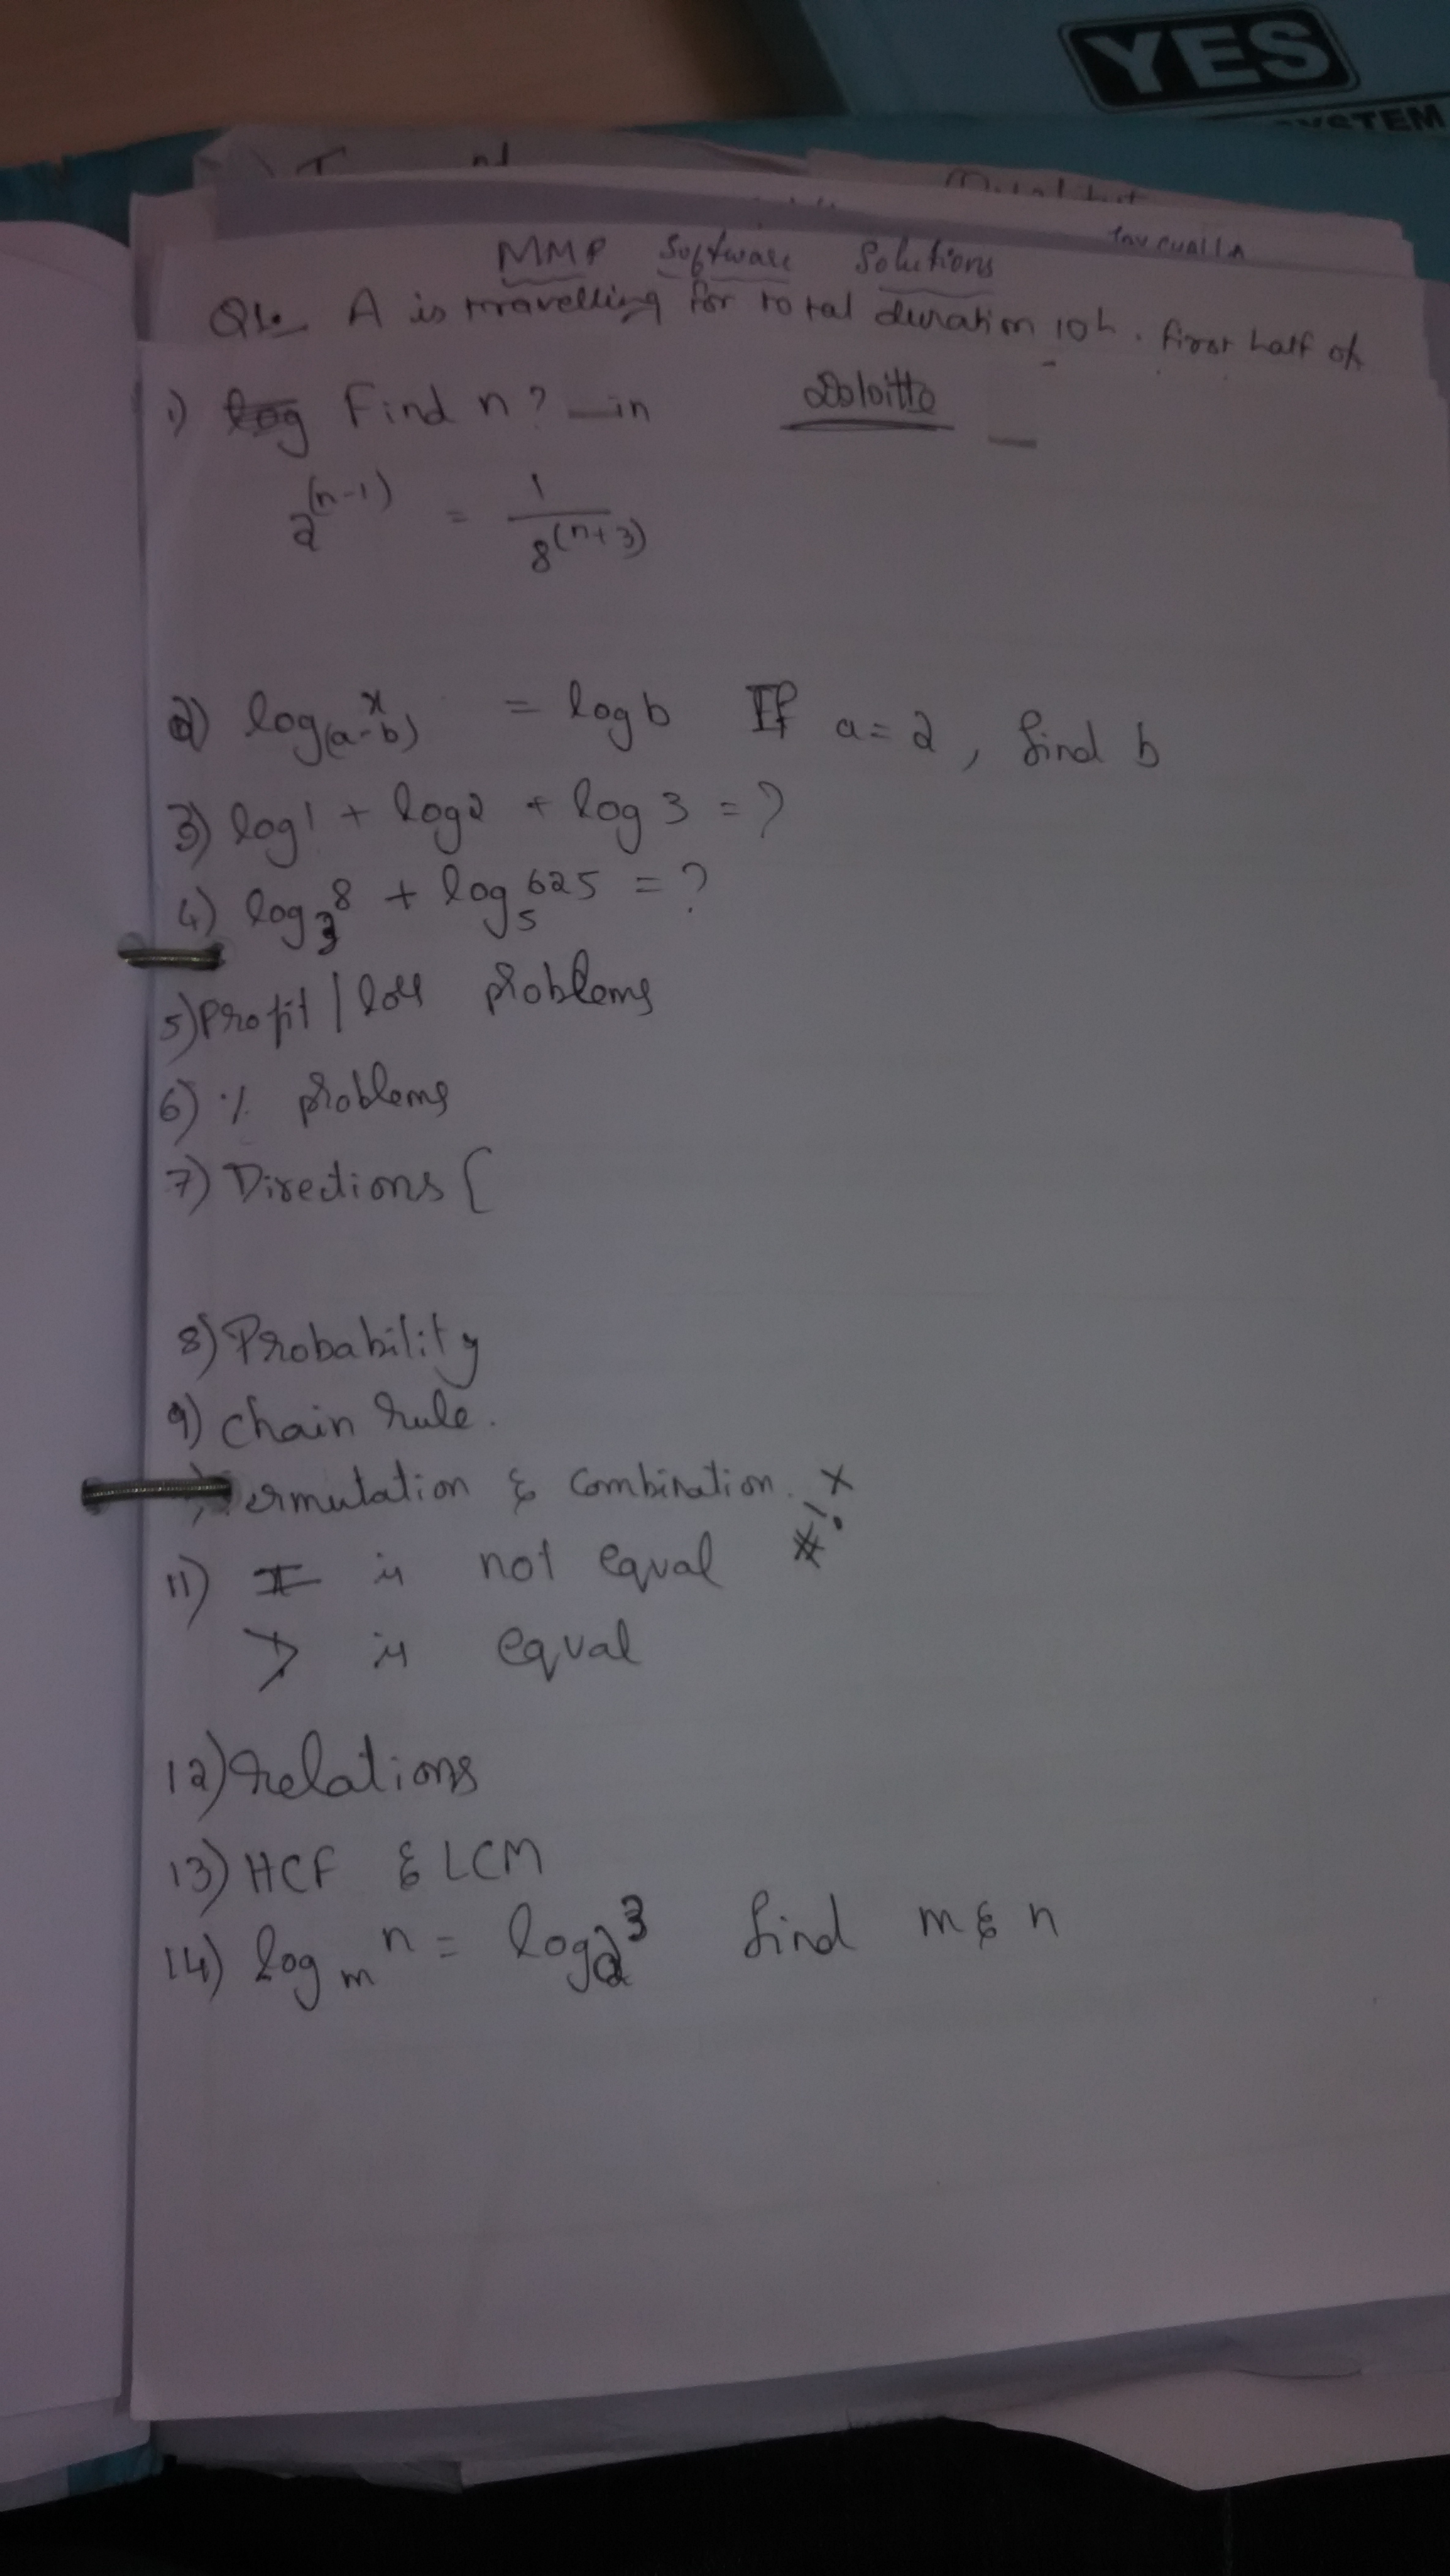 YES
SYSTEM
MMP Software Solutions
Q1. A is travelling for total duration 10h. first half of
1) log Find n? in Deloitte
2^(n-1) = 1/8^(n+3)
2) log(a-b)^x = log b If a=2, find b
3) log1 + log2 + log 3 = ?
4) log3^8 + log5^625 = ?
5) Profit / loss problems
6) % problems
7) Directions {
8) Probability
9) Chain rule.
ermutation & Combination. X
11) I is not equal #
> is equal
12) relations
13) HCF & LCM
14) log m^n = log2^3 find m & n